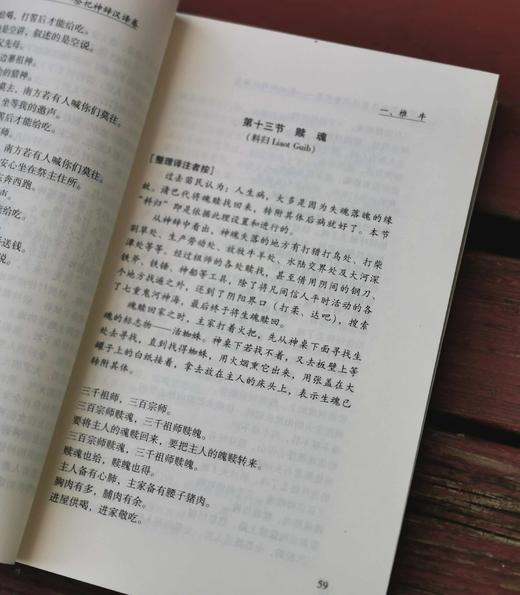 祭祀神辞汉译卷
给喝，打窖后才能给吃。
是空讲，叙述的是空说。
父先母。
边寨祖神。
给的腊神。
莫去，南方若有人喊你们莫往。
坐等我的邀声。
后才能给吃。
师。
南方若有人喊你们莫往。
安心坐在祭主住所。
东奔西跑。
给吃。
送钱。
一、椎 牛
第十三节 赎 魂
（料归 Liaot Guib）
［整理译注者按］
过去苗民认为：人生病，大多是因为失魂落魄的缘
故。请巴代将魂赎找回来，转附其体后病就好了。本节
“料归”即是依据此理设置和进行的。
从神辞中看出，神魂失落的地方有打猎打鸟处、打柴
割草处、生产劳动处、放放牛羊处、水陆交界处及大河深
潭处等等。经过祖师的各处赎找，甚至借用阴间的钢刀、
铁斧、铁锤、神船等工具，除了将凡间信人平时活动的各
个地方找遍之外，还到了阴阳界口（打柔、达吧），搜索
了七重鬼河神海，最终于将生魂赎回。
魂赎回家之时，主家打着火把，先从神桌下面寻找生
魂的标志物——活蜘蛛。神桌下若找不着，又去板壁上等
处去寻找，直到找得蜘蛛，用火烟熏它出来，用张盖在大
罐子上的白纸接着，拿去放在主人的床头上，表示生魂已
转附其体。
三千祖师，三百宗师。
三百宗师赎魂，三千祖师赎魄。
要将主人的魂赎回来，要把主人的魄赎转来。
三百宗师赎魂，三千祖师赎魄。
赎魂也给，赎魄也得。
主人备有心肺，主家备有腰子猪肉。
胸肉有多，脯肉有余。
进屋供喝，进家敬吃。
59